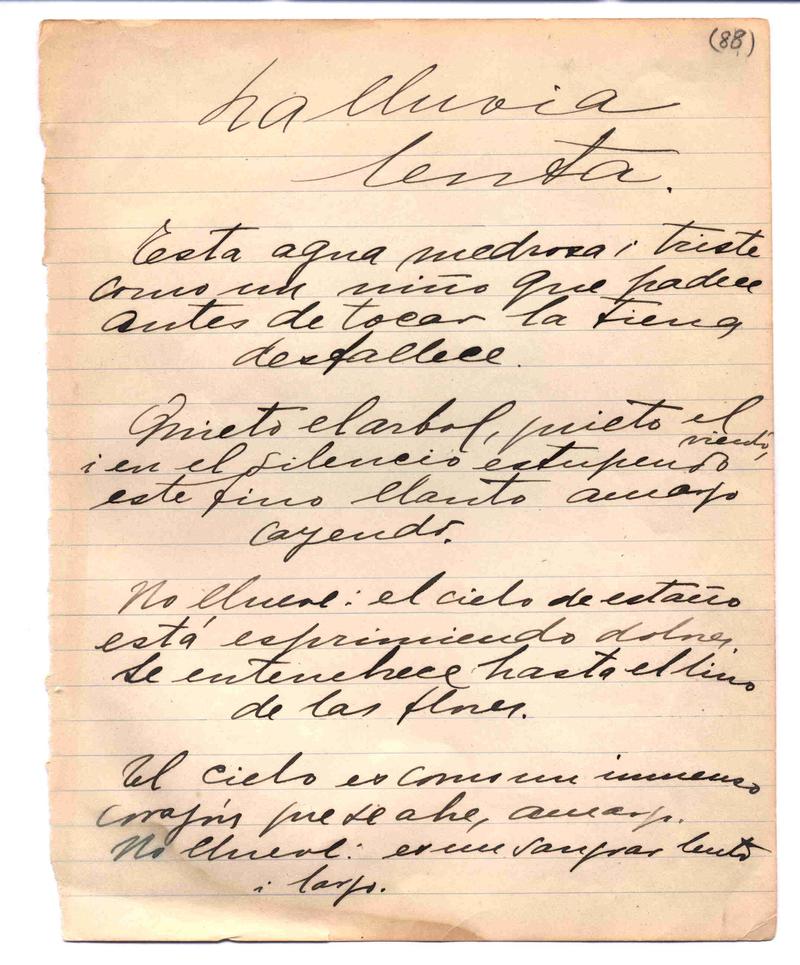 (88)
La lluvia
lenta.
Esta agua medrosa i triste
como un niño que padece
antes de tocar la tierra
desfallece.
Quieto el arbol, quieto el
viento,
i en el silencio estupendo
este fino llanto amargo
cayendo.
No llueve: el cielo de estaño
está esprimiendo dolores
Se entenebrece hasta el lino
de las flores.
El cielo es como un inmenso
corazón que se abre, amargo.
No llueve: es un sangrar lento
i largo.